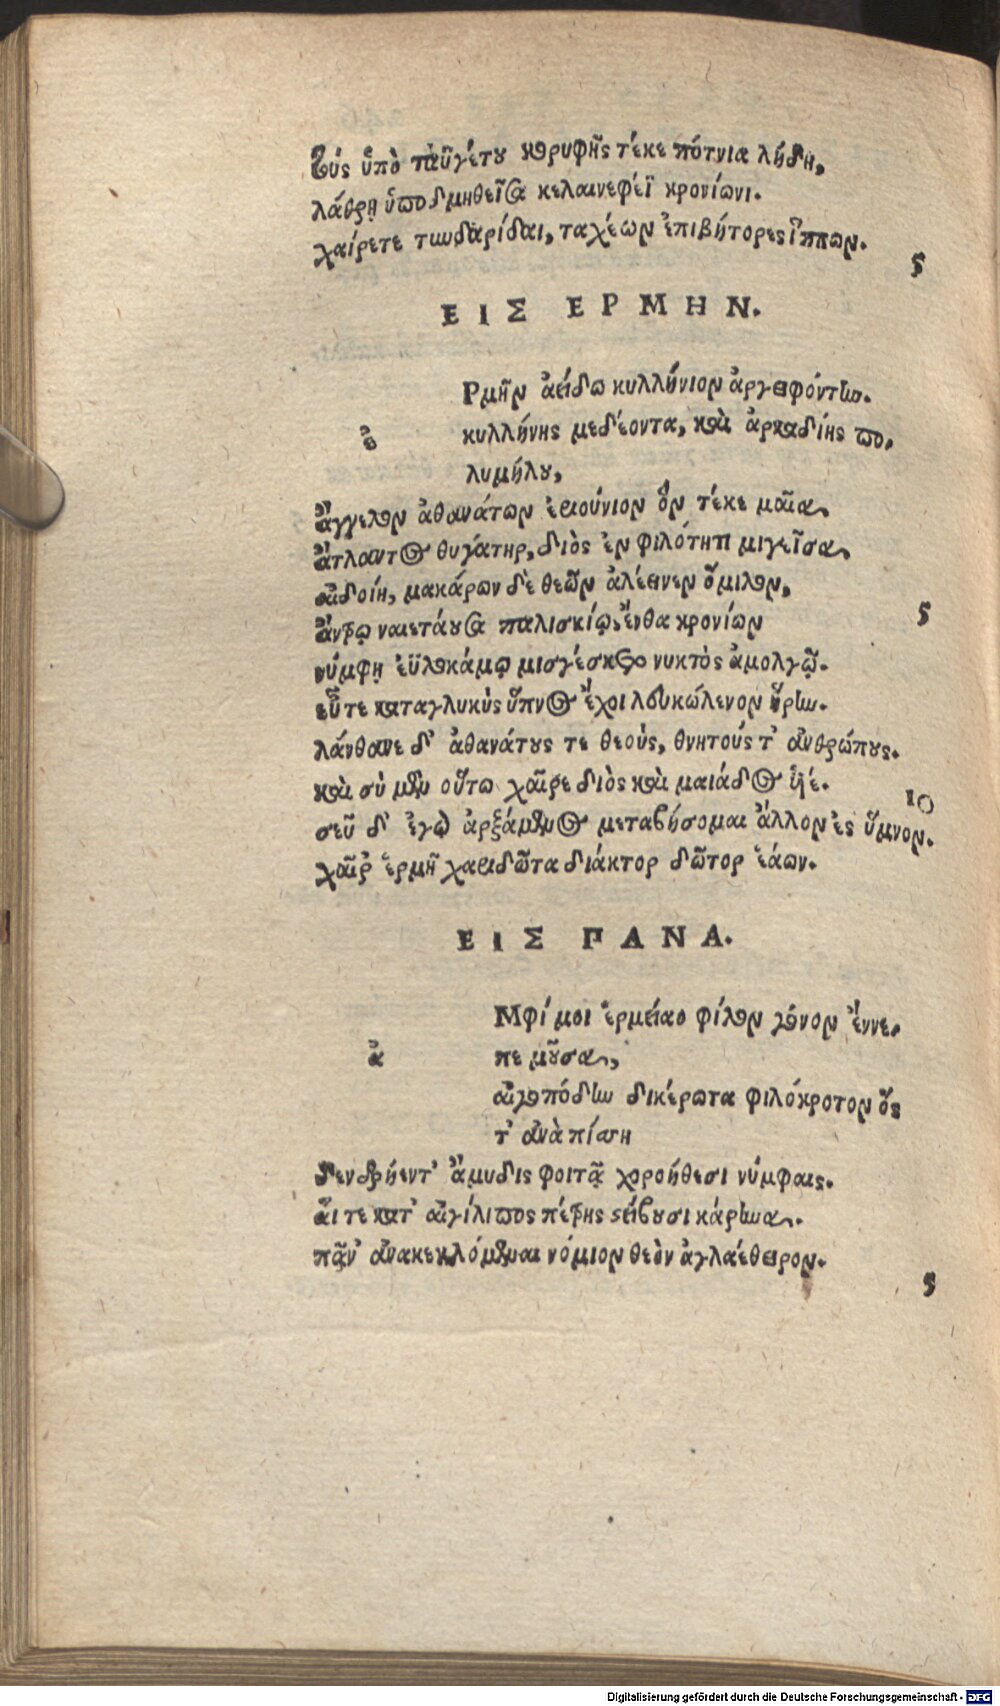 τοὺς ὑπὸ ταῢγέτου κορυφῆς τέκε πότνια λήδη,
λάθρῃ ὑποδμηθεῖσα κελαινεφέϊ κρονίωνι.
χαίρετε τυνδαρίδαι, ταχέων ἐπιβήτορες ἵππων.
5
ΕΙΣ ΕΡΜΗΝ.
Ρμῆν ἀείδω κυλλήνιον ἀργειφόντην.
ἑ
κυλλήνης μεδέοντα, καὶ ἀρκαδίης πο,
λυμήλου,
ἄγγελον ἀθανάτων ἐριούνιον ὃν τέκε μαῖα,
ἄτλαντος θυγάτηρ, διὸς ἐν φιλότητι μιγεῖσα,
αἰδοίη, μακάρων δὲ θεῶν ἀλέεινεν ὅμιλον,
5
ἄντρῳ ναιετάουσα παλισκίῳ, ἔνθα κρονίων
νύμφῃ ἐϋπλοκάμῳ μισγέσκετο νυκτὸς ἀμολγῷ.
εὖτε κατα γλυκὺς ὕπνος ἔχοι λευκώλενον ἥρην.
λάνθανε δ' ἀθανάτους τε θεοὺς, θνητούς τ' ἀνθρώπους.
καὶ σὺ μὲν οὕτω χαῖρε διὸς καὶ μαιάδος ὑιέ.
10
σεῦ δ' ἐγὼ ἀρξάμενος μεταβήσομαι ἄλλον ἐς ὕμνον.
χαῖρ' ἑρμῆ χαριδῶτα διάκτορ δῶτορ ἐάων.
ΕΙΣ ΠΑΝΑ.
Μφί μοι ἑρμείαο φίλον γόνον ἔννε,
ἀ
πε μοῦσα,
αἰγοπόδην δικέρωτα φιλόκροτον ὅς
τ' ἀνὰ πίση
δενδρήεντ' ἄμυδις φοιτᾷ χοροήθεσι νύμφαις.
αἵ τε κατ' αἰγίλιπος πέτρης στείβουσι κάρηνα.
πᾶν' ἀνακεκλόμεναι νόμιον θεὸν ἀγλαέθειρον.
5
Digitalisierung gefördert durch die Deutsche Forschungsgemeinschaft - DFG